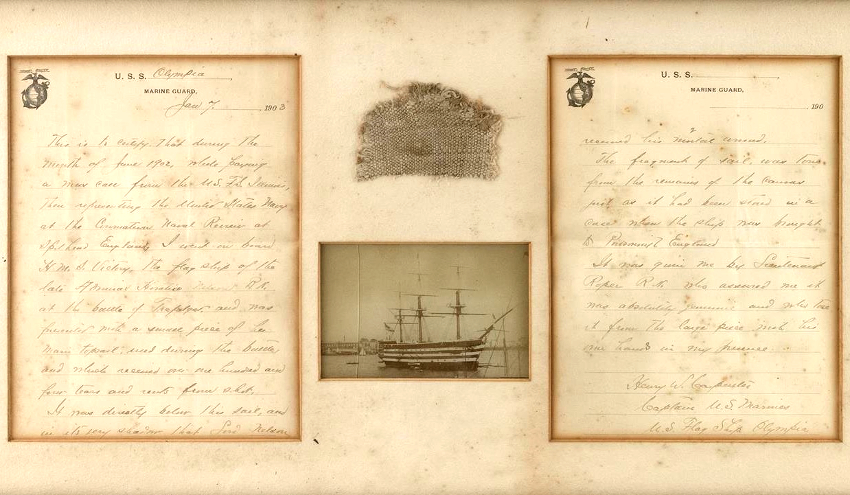 U. S. S. Olympia
MARINE GUARD,
Jan 7, 1903
This is to certify that during the
month of June 1902, while
a from the U.S. F.S.
then representing the United States Navy
at the Coronation Naval Review at
Spithead England, I went on board
H.M.S. Victory, the flag ship of the
late Admiral Horatio R.N.
at the battle of and was
presented with a piece of
used during the battle
and which received over one hundred and
four tears and from shot.
It was directly below this sail, and
in its very shadow that Lord Nelson
U. S. S.
MARINE GUARD,
190
received his mortal wound.
The fragment of sail was
from the remains of the
sail as it had been in a
case when the ship was brought
to England
It was given me by Lieutenant
Roper R.N. who assured me it
was absolutely genuine and who
it from the large piece with his
own hands in my presence.
Henry W. Carpenter
Captain U.S. Marines
U.S. Flag Ship Olympia